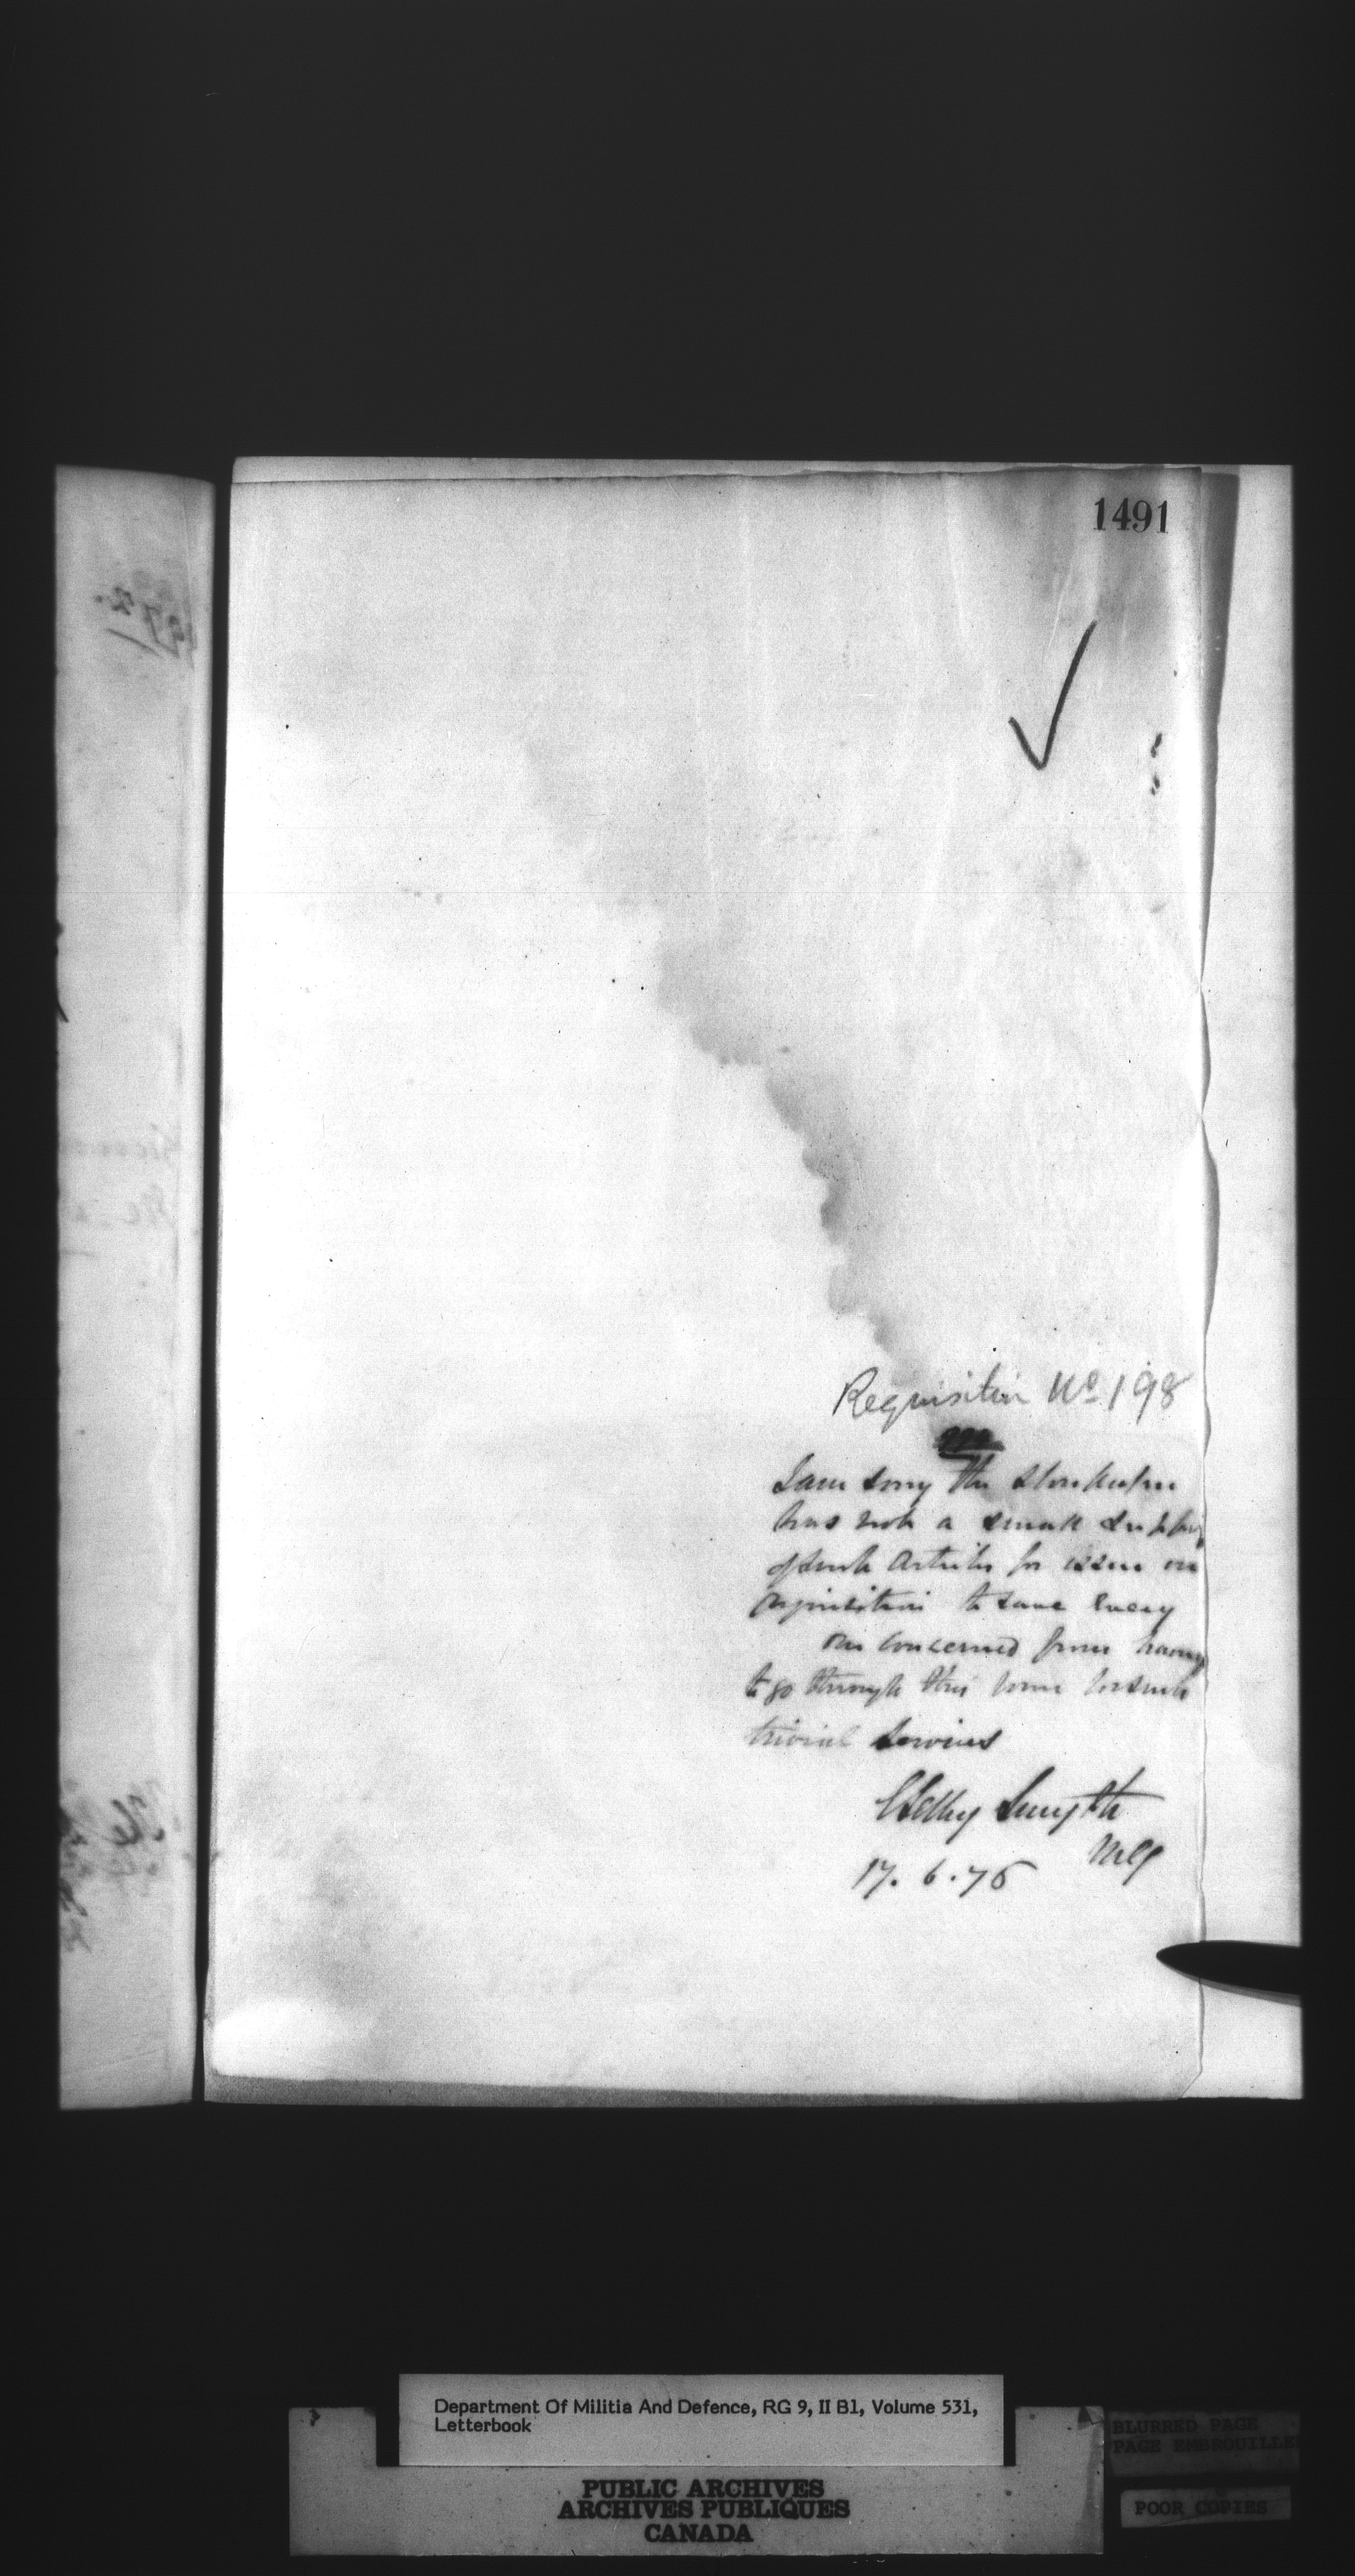 1491
Requisition No 198
I am sorry the Storekeeper
has not a small supply
of such articles for issue on
requisition to save every
one concerned from having
to go through this form for such
trivial services
E Selby Smyth
MG
17. 6. 76
Department Of Militia And Defence, RG 9, II B1, Volume 531,
Letterbook
PUBLIC ARCHIVES
ARCHIVES PUBLIQUES
CANADA
BLURRED PAGE
PAGE EMBROUILLEE
POOR COPIES